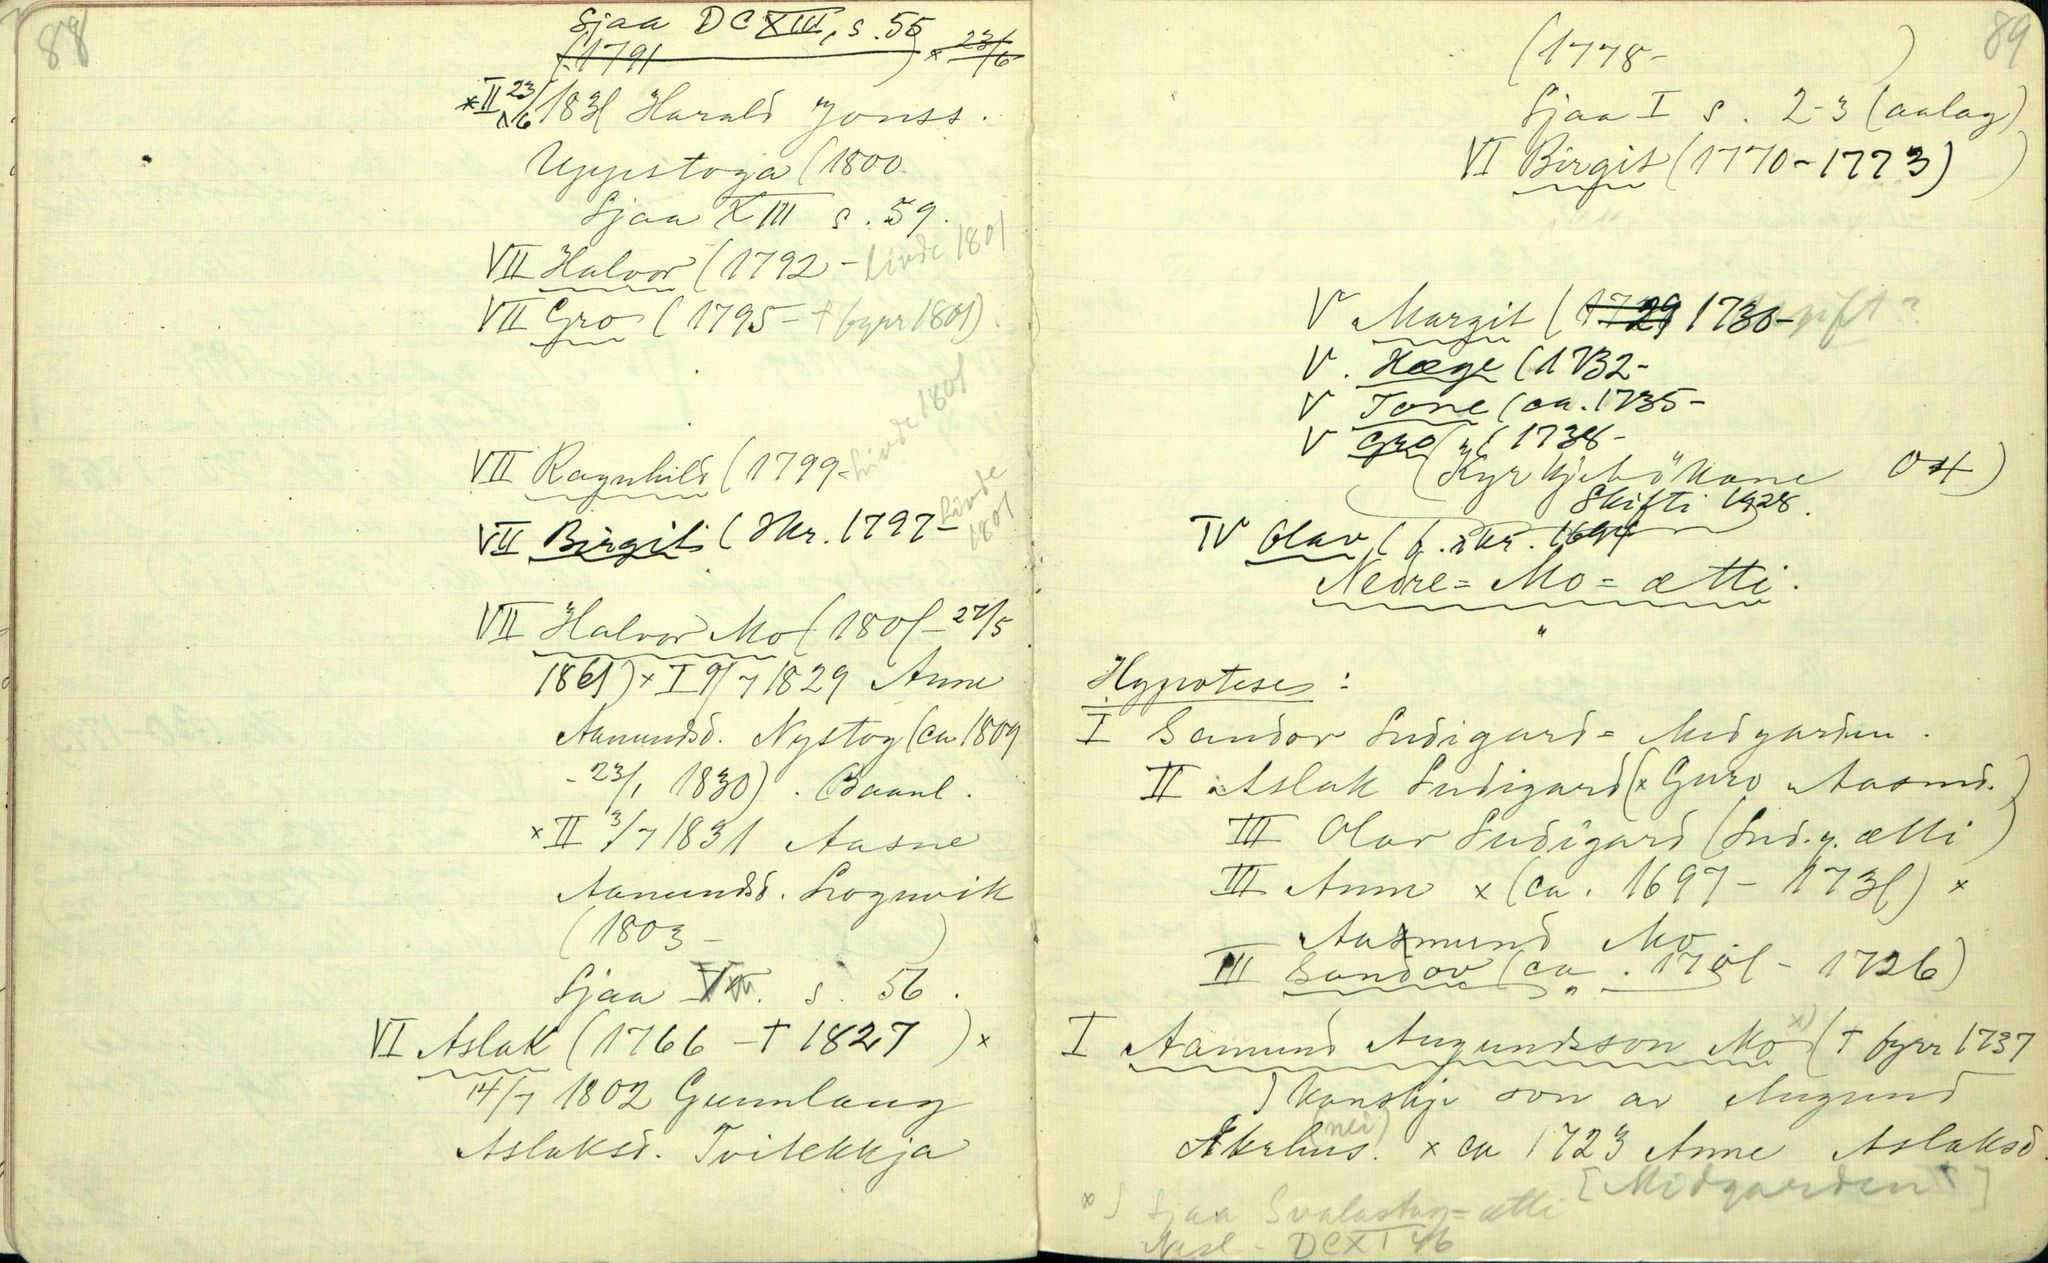 88
Sjaa DCXIII, s. 55
(1791 ) × 23/6
×II 23/6 1831 Harald Jonss.
Uppistoga (1800
Sjaa XIII s. 59.
VII Halvor (1792 - livde 1801
VII Gro (1795 - † fyrr 1801)
VII Ragnhild (1799 - Livde 1801
VII Birgit (Skr. 1797 - Livde 1801
VII Halvor Mo (1801 - 27/5
1861) × I 9/7 1829 Anne
Aamundsd. Nystog (ca 1809
- 23/1 1830). Baanl.
× II 3/7 1831 Aasne
Aamundsd. Lognvik
(1803 - )
Sjaa s. 56.
VI Aslak (1766 - † 1827) ×
14/7 1802 Gunnlaug
Aslaksd. Tvitekkja
89
(1778- )
Sjaa I s. 2-3 (aalag)
VI Birgit (1770 - 1773)
V Margit (1729 1730 - gift?
V. Hæge (1732-
V Tone (ca. 1735-
V Gro (1738-
(Kyrkjebökane O4)
Skifti 1728.
IV Olav (f. skr. 1694
Nedre = Mo = ætti.
"
Hypoteses:
I Sandor Sudigard = Midgarden.
II Aslak Sudigard (× Guro Aasmd.)
III Olav Sudigard (Sud.g. ætti)
III Anne × (ca. 1697 - 1731) ×
Aamund Mo
III Sandov (ca. 1701 - 1726)
"
I Aamund Augundsson Mo x) († fyrr 1737
) kanskje son av Augund
Åkrhus. (nei) × ca 1723 Anne Aslaksd.
[Midgarden]
x) Sjaa Svalastog = ætti
DCXI 46